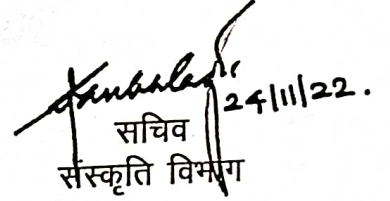 24/11/22.
सचिव
संस्कृति विभाग